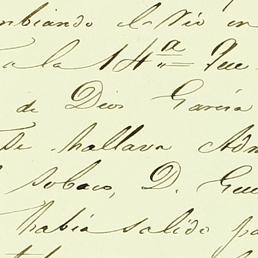 mbiando el Río en
a la 14ª Que
de Dios García
se hallava Adm
sobaco, D. Gu
había salido pa